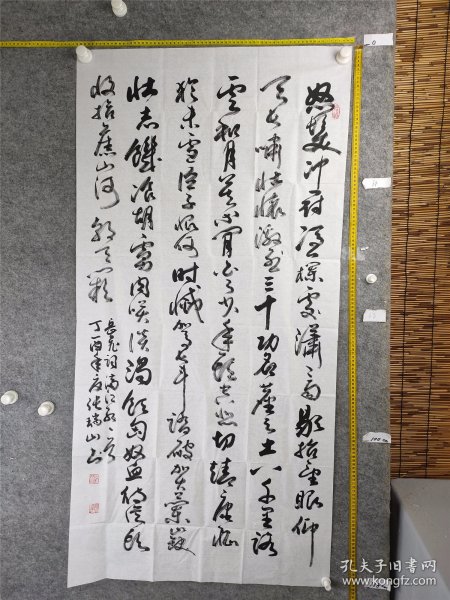 怒发冲冠凭栏处潇潇雨歇抬望眼仰
天长啸壮怀激烈三十功名尘与土八千里路
云和月莫等闲白了少年头空悲切靖康耻
犹未雪臣子恨何时灭驾长车踏破贺兰山缺
壮志饥餐胡虏肉笑谈渴饮匈奴血待从头
收拾旧山河朝天阙
岳飞词满江红
丁酉年
瑞山书
孔夫子旧书网
www.kongfz.com